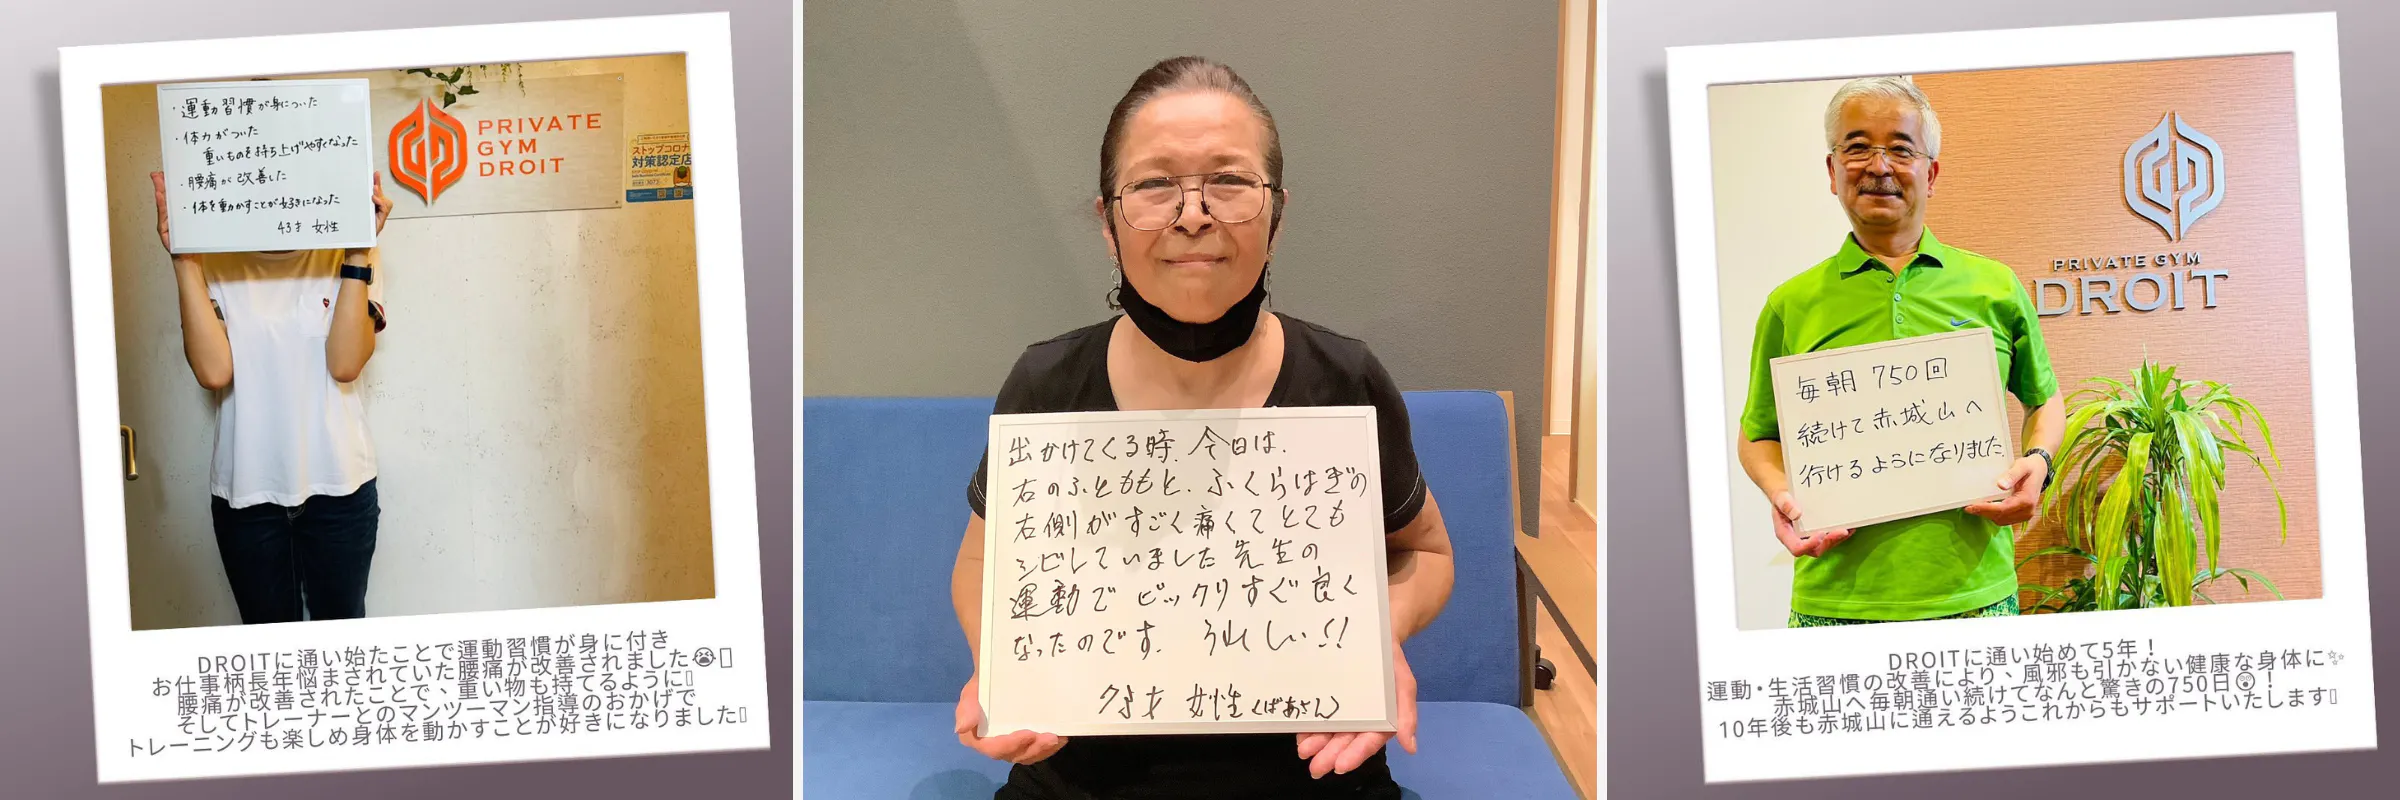 ・運動習慣が身についた
・体力がついた
重いものを持ち上げやすくなった
・腰痛が改善した
・体を動かすことが好きになった
43才 女性
PRIVATE
GYM
DROIT
ストップコロナ
対策認定店
DROITに通い始たことで運動習慣が身に付き
お仕事柄長年悩まされていた腰痛が改善されました😭
腰痛が改善されたことで、重い物も持てるように
そしてトレーナーとのマンツーマン指導のおかげで
トレーニングも楽しめ身体を動かすことが好きになりました
出かけてくる時、今日は、
右のふともと、ふくらはぎの
右側がすごく痛くてとても
シビレていました先生の
運動でビックリすぐ良く
なったのです。うれしい!!
才 女性(ばあさん)
PRIVATE GYM
DROIT
毎朝 750回
続けて赤城山へ
行けるようになりました
DROITに通い始めて5年！
運動・生活習慣の改善により、風邪も引かない健康な身体に✨
赤城山へ毎朝通い続けてなんと驚きの750日😲！
10年後も赤城山に通えるようこれからもサポートいたします